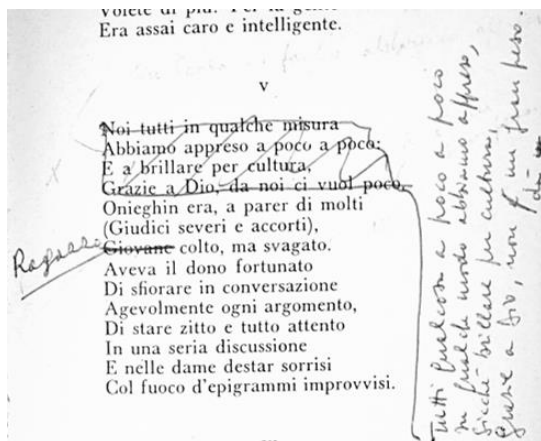 Volete di più? Per la gente
Era assai caro e intelligente.
V
Noi tutti in qualche misura
Abbiamo appreso a poco a poco:
E a brillare per cultura,
Grazie a Dio, da noi ci vuol poco.
Onieghin era, a parer di molti
(Giudici severi e accorti),
Giovane colto, ma svagato.
Aveva il dono fortunato
Di sfiorare in conversazione
Agevolmente ogni argomento,
Di stare zitto e tutto attento
In una seria discussione
E nelle dame destar sorrisi
Col fuoco d'epigrammi improvvisi.
Ragazzo
Tutti qualcosa a poco a poco
in qualche modo abbiamo appreso,
sicché brillare per cultura,
grazie a Dio, non è un gran peso.